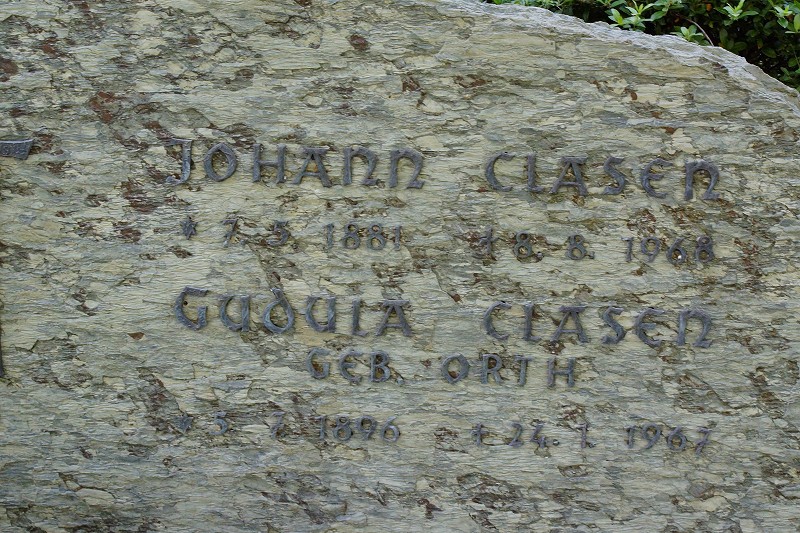 JOHANN CLASEN
* 7. 5. 1881 † 8. 8. 1968
GUDULA CLASEN
GEB. ORTH
* 5. 7. 1896 † 24. 1. 1967